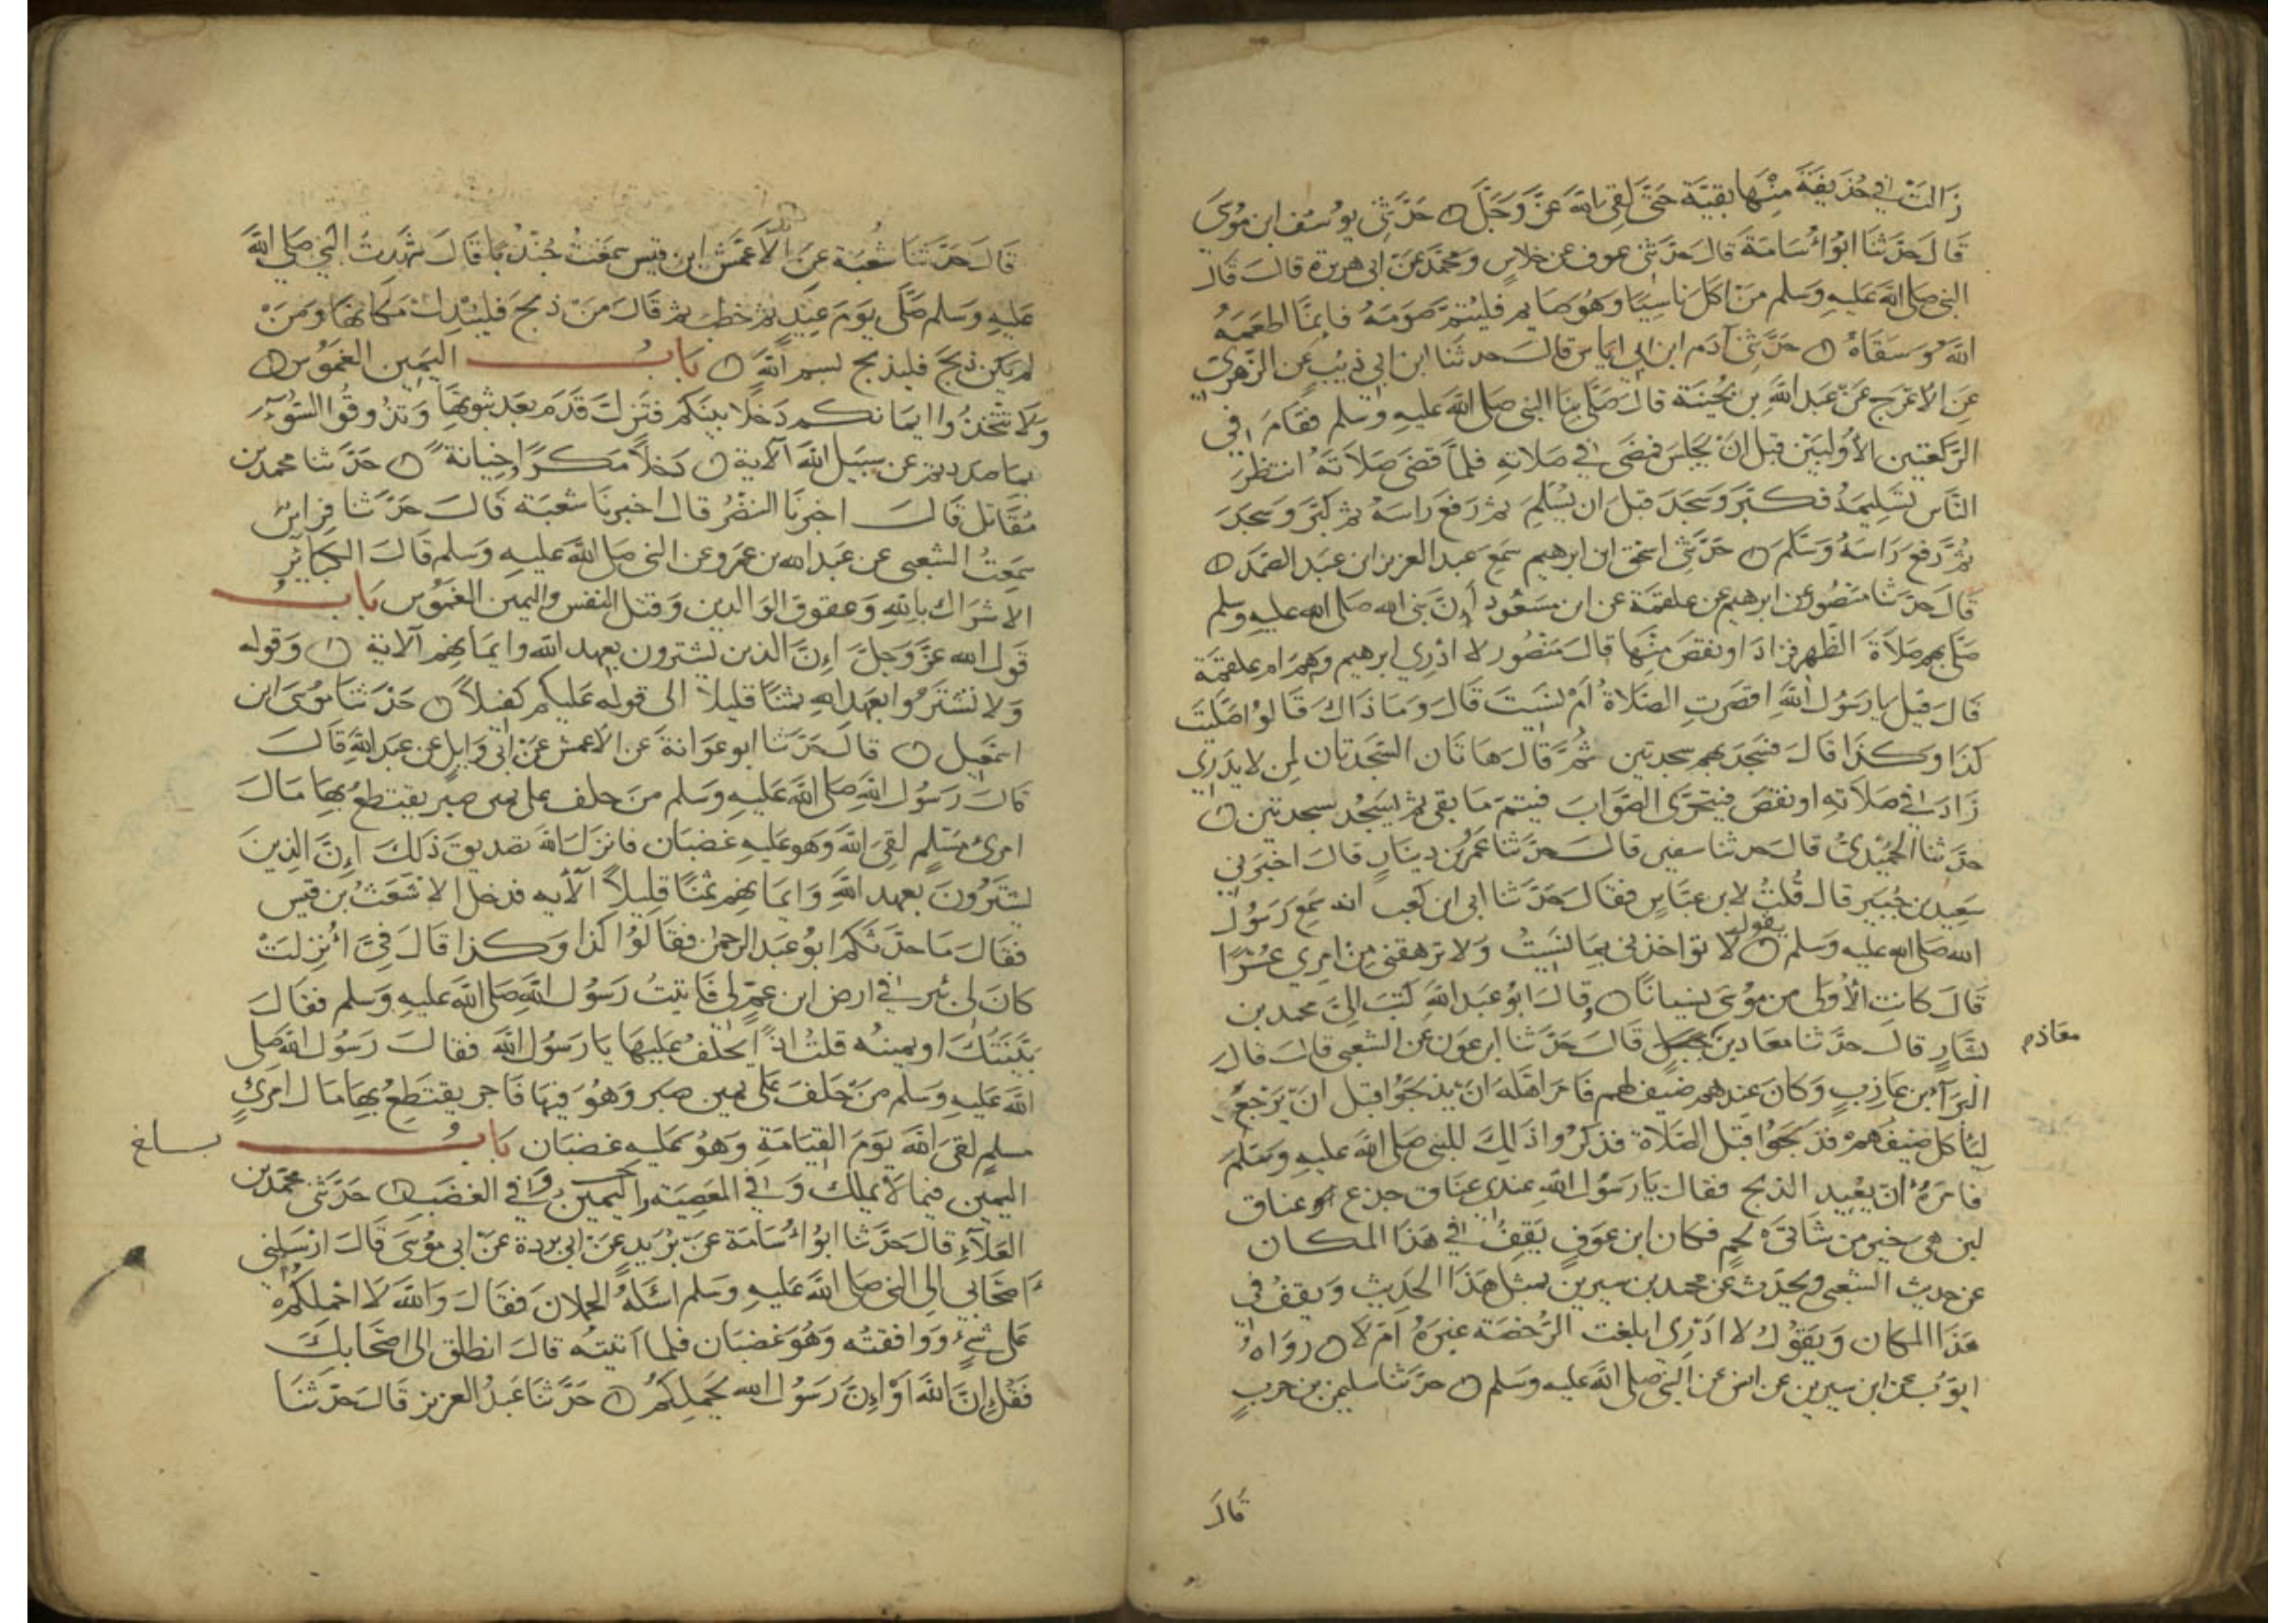 زَالَتْ في حُذَيفَةَ مِنْهَا بقيَّة حَتَّى لَقِيَ اللهَ عَزَّ وَجَلَّ ۝ حَدَّثَنِي يوُسُف ابن مُوسَى
قَالَ حَدَثنَا ابوُا أُسَامَةَ قالَ حَدّثني عوف عن خلاسٍ ومحمَّد عَنْ ابي هريرة قالَ قَالَ
النبي صَلى اللهُ عَليهِ وَسَلم مَن اكَل نَاسِيًا وَهُوَ صَايم فليُتمَّ صَومَهُ فَانمَّا اطعَمَهُ
اللهُ وَسَقَاهُ ۝ حَدَّثَنِي آدَم ابن ابي اياس قالَ حدثنَا ابن ابي ذيبٍ عَن الزّهريّ
عَن الاعْرَج عَنْ عَبد اللهِ بن بُحَينَة قالَ صَلَّى بنَا النبي صَلى اللهُ عَليهِ وسلم فقَامَ في
الرَّكعَتين الاُولَيَين قبل انْ يجلسَ فمَضَى في صَلاتهِ فلماَّ قضىَ صَلاَتَهُ انتظرَ
النَّاس تسْليمَهُ فكبَّر وَسَجَدَ قبلَ ان يُسَلِّمَ ثم رَفعَ رَاسَهُ ثم كبَّرَ وَسَجَدَ
ثمَّ رَفعَ رَاسَهُ وَسَلَّمَ ۝ حَدَّثَني اسحَق ابن ابرهيم سَمِعَ عبد العزيز ابن عَبد الصَّمَد ۝
قَالَ حَدَّثنَا مَنصُور عن ابرهيم عن علقمَة عن ابن مسَعُودٍ أنَّ نبي الله صَلى الله عليه وسلم
صَلَّى بهم صَلاَةَ الظّهرِ فزادَ او نقصَ مِنْهَا قالَ مَنصُور لا ادْرِي ابرهيم وَهم ام علقمَة
قالَ قيل يا رَسُول اللهِ اقصَرتِ الصَّلاة أَمْ نسيتَ قالَ وَمَا ذاكَ قَالوُا صَلَّيتَ
كذَا وكذَا قالَ فسَجَدَ بهم سجدتَين ثمَّ قَالَ هَاتَان السَّجدَتان لِمن لايدرِي
زَادَ في صَلاَتهِ او نقصَ فيَتحَرّى الصّوابَ فيُتم مَا بقي ثم يَسجُد سجدتَين ۝
حدَّثنا الحميديُّ قالَ حدثنا سفين قالَ حَدَّثنا عمرُو بن دينَارٍ قالَ اخبرَني
سَعِيد بن جُبَيرٍ قالَ قُلتُ لابن عبَّاسٍ فقالَ حَدَّثنا ابي ابن كعب انه سَمِعَ رَسُول
الله صَلى الله عليه وسلم يقول ۝ لا تواخذني بمَا نسِيتُ وَلا ترهقني مِنْ امرِي عُسْرًا
قالَ كانتِ الاُولى من مُوسَى نِسيانًا ۝ قالَ ابوُ عَبد اللهِ كتبَ اليَّ محمد بن
بشَّارٍ قالَ حدَّثنا معَاد بن جبل قالَ حَدَّثنا ابن عَون عن الشعبي قالَ قالَ
معَاذ م
البَرآءُ بن عَازبٍ وَكانَ عِندهم ضَيف لهم فامَرَ اهْلهُ انَ يذبحَوُا قبل انَ يَرجعَ
ليَأكلَ ضيفهُم فذبحَوُا قبلَ الصَّلاة فذكرُوا ذَالِكَ للنبي صَلى اللهُ عَليهِ وَسَلم
فامَرَهُ أنْ يُعِيد الذبح فقالَ يَا رَسُول اللهِ عندي عَنَاق جذع عناق
لبن هي خيرٌ من شَاتي لحمٍ فكان ابن عَوفٍ يَقِفُ في هَذا المكان
عن حديث الشعبي ويحدّث عَن محمد بن سيرين بمثل هَذَا الحَدِيث وَيقفُ في
هَذَا المكان وَيقوُل لا ادْرِي ابلغت الرُّخصَة غيرَهُ امَ لا ۝ رواهُ
ايوّبُ عن ابن سيرين عن انس عن النبي صلى اللهُ عَليه وسَلم ۝ حدَّثنا سليمن بن حربٍ
قالَ
قَالَ حَدَّثَنَا شُعْبَة عن الأسود ابن قيس سمعتُ جُنْدُبًا قالَ شهدتُ النبي صَلى اللهُ
عَليهِ وَسَلم صَلَّى يَومَ عيدٍ ثم خطبَ ثم قالَ مَن ذبحَ فليُبدِلْ مَكانهَا وَمَنْ
لم يكن ذبحَ فليذبح بسم اللهِ ۝ بَابُ اليَمين الغمُوس ۝
وَلا تتَّخذُوا ايمَانكم دَخَلا بينكم فتَزلَّ قدَم بعدَ ثبوتهَا وَتذُوقُوا السُّوءَ
بما صددتم عن سَبيل اللهِ الآية ۝ دَخلاً مَكرًا وخيانة ۝ حَدَّثنا محمد بن
مُقاتل قالَ اخبرنَا النضْرُ قالَ اخبرنَا شعبَة قالَ حَدَّثنا فِراسٌ
سمعتُ الشعبي عن عبد الله بن عَمرو عن النبي صَلى اللهُ عَليهِ وَسَلم قالَ الكبَائرِ
الاشرَاك باللهِ وَعقوق الوَالدين وَقتل النفس واليمين الغمُوس بَابُ
قول الله عَزَّ وَجَلَّ إنَّ الذين يَشترون بعَهد اللهِ وايمَانهم الآية ۝ وَقوله
وَلا تشترُوا بعَهد اللهِ ثمنًا قليلاً الى قوله عَليكم كفيلاً ۝ حَدَّثنا مُوسَى ابن
اسمَعيل ۝ قالَ حَدَّثنا ابو عوَانة عَن الاعمش عَنْ ابي وَايلٍ عن عَبد اللهِ قالَ
قالَ رَسُول اللهِ صَلى اللهُ عَليهِ وَسَلم مَن حَلف على يمين صبرٍ يقتطعُ بهَا مَال
امرئ مُسْلمٍ لقيَ اللهَ وَهوَ عَليهِ غضبَان فانزَل اللهُ تصديق ذَلكَ إنَّ الذينَ
يشترُونَ بعهد اللهِ وَايمَانهم ثمَنًا قليلاً الآيه فدخل الاشعَث بن قيس
فقالَ مَا حدَّثكم ابوُ عَبد الرحمن فقالوُا كذا وكذا قالَ فيَّ أُنزلَتْ
كانَ لي بئر في ارض ابن عمٍّ لي فاتيتُ رَسُول اللهِ صَلى اللهُ عَليهِ وَسَلم فقالَ
بَيّنتكَ او يمينُه قلتُ اذًا يَحلفُ عَليهَا يَا رَسُول اللهِ فقالَ رَسُول اللهِ صَلى
اللهُ عَليهِ وَسَلم مَنْ حَلفَ عَلى يمين صبر وَهُوَ فيهَا فَاجر يقتطعُ بهَا مَال امرئٍ
مسلمٍ لقيَ اللهَ يَومَ القيَامَةِ وَهُوَ عَليهِ غضبَان بَابُ
بلغ
اليَمين فيما لا يملكُ وَفي المعَصيَة واليَمين في الغضَب ۝ حَدَّثني محمَّد بن
العَلاءِ قالَ حَدَّثنا ابوُ أُسَامَة عَن بُرَيدٍ عَنْ ابي بردة عَن ابي مُوسَى قالَ ارسَلني
اصْحَابي الى النبي صَلى اللهُ عَليهِ وسلم اسْئَلهُ الحملانَ فقالَ وَاللهِ لا احْمِلكمُ
عَلى شيءٍ ووَافقته وَهُوَ غضبَان فلما اتيتُه قالَ انطلق الى اصحَابكَ
فَقُل إنَّ اللهَ اوْ إنَّ رَسُول الله يحملِكمُ ۝ حَدَّثنَا عَبدُ العزيز قَالَ حَدَّثنَا